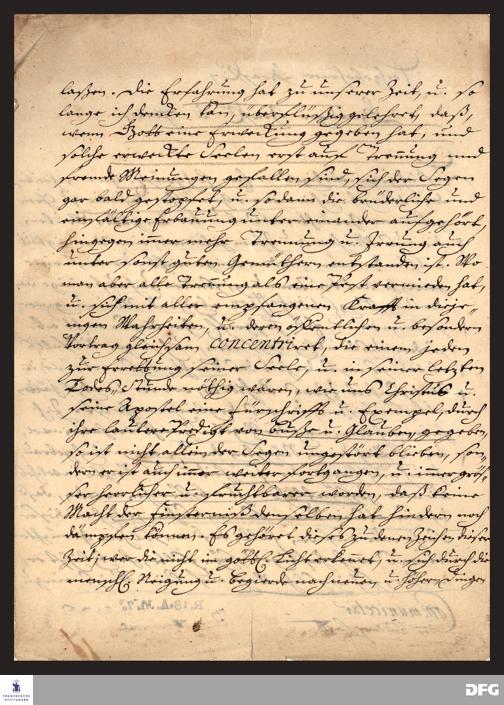 laßen. Die Erfahrung hat zu unserer Zeit, u. so
lange ich dencken kan, überflüßig gelehret, daß,
wenn Gott eine Erweckung gegeben hat, und
solche erweckte Seelen erst auf Trennung und
fremde Meinungen gefallen sind, sich der Segen
gar bald gestopfet, u. sodann die brüderliche und
einfältige Erbauung untereinander aufgehört,
hingegen immer mehr Trennung u. Irrung auch
unter sonst guten Gemüthern entstanden ist. Wo
man aber alle Trennung als eine Pest vermieden hat,
u. sich mit aller empfangenen Krafft in dieje-
nigen Wahrheiten, u. deren öffentlichen u. besondern
Vortrag gleichsam concentriret, die einem jeden
zur Errettung seiner Seele, u. in seiner letzten
Todes-Stunde nöthig wären, wie uns Christus u.
seine Apostel eine Fürschrifft u. Exempel durch
ihre lautere Predigt von Buße u. Glauben gegeben,
so ist nicht allein der Segen ungestört blieben, son-
dern er ist auch immer weiter fortgangen, u. immer grö-
ßer herrlicher u. fruchtbarer worden, daß keine
Macht der Finsterniß denselben hat hindern noch
dämpfen können. Es gehöret dieses zu denen Zeichen dieser
Zeit; wer die nicht in göttl. Licht erkennet, u. sich durch die
menschl. Neigung u. Begierde nach neuen, u. höhern Dingen
FRANCKESCHE
STIFTUNGEN
DFG